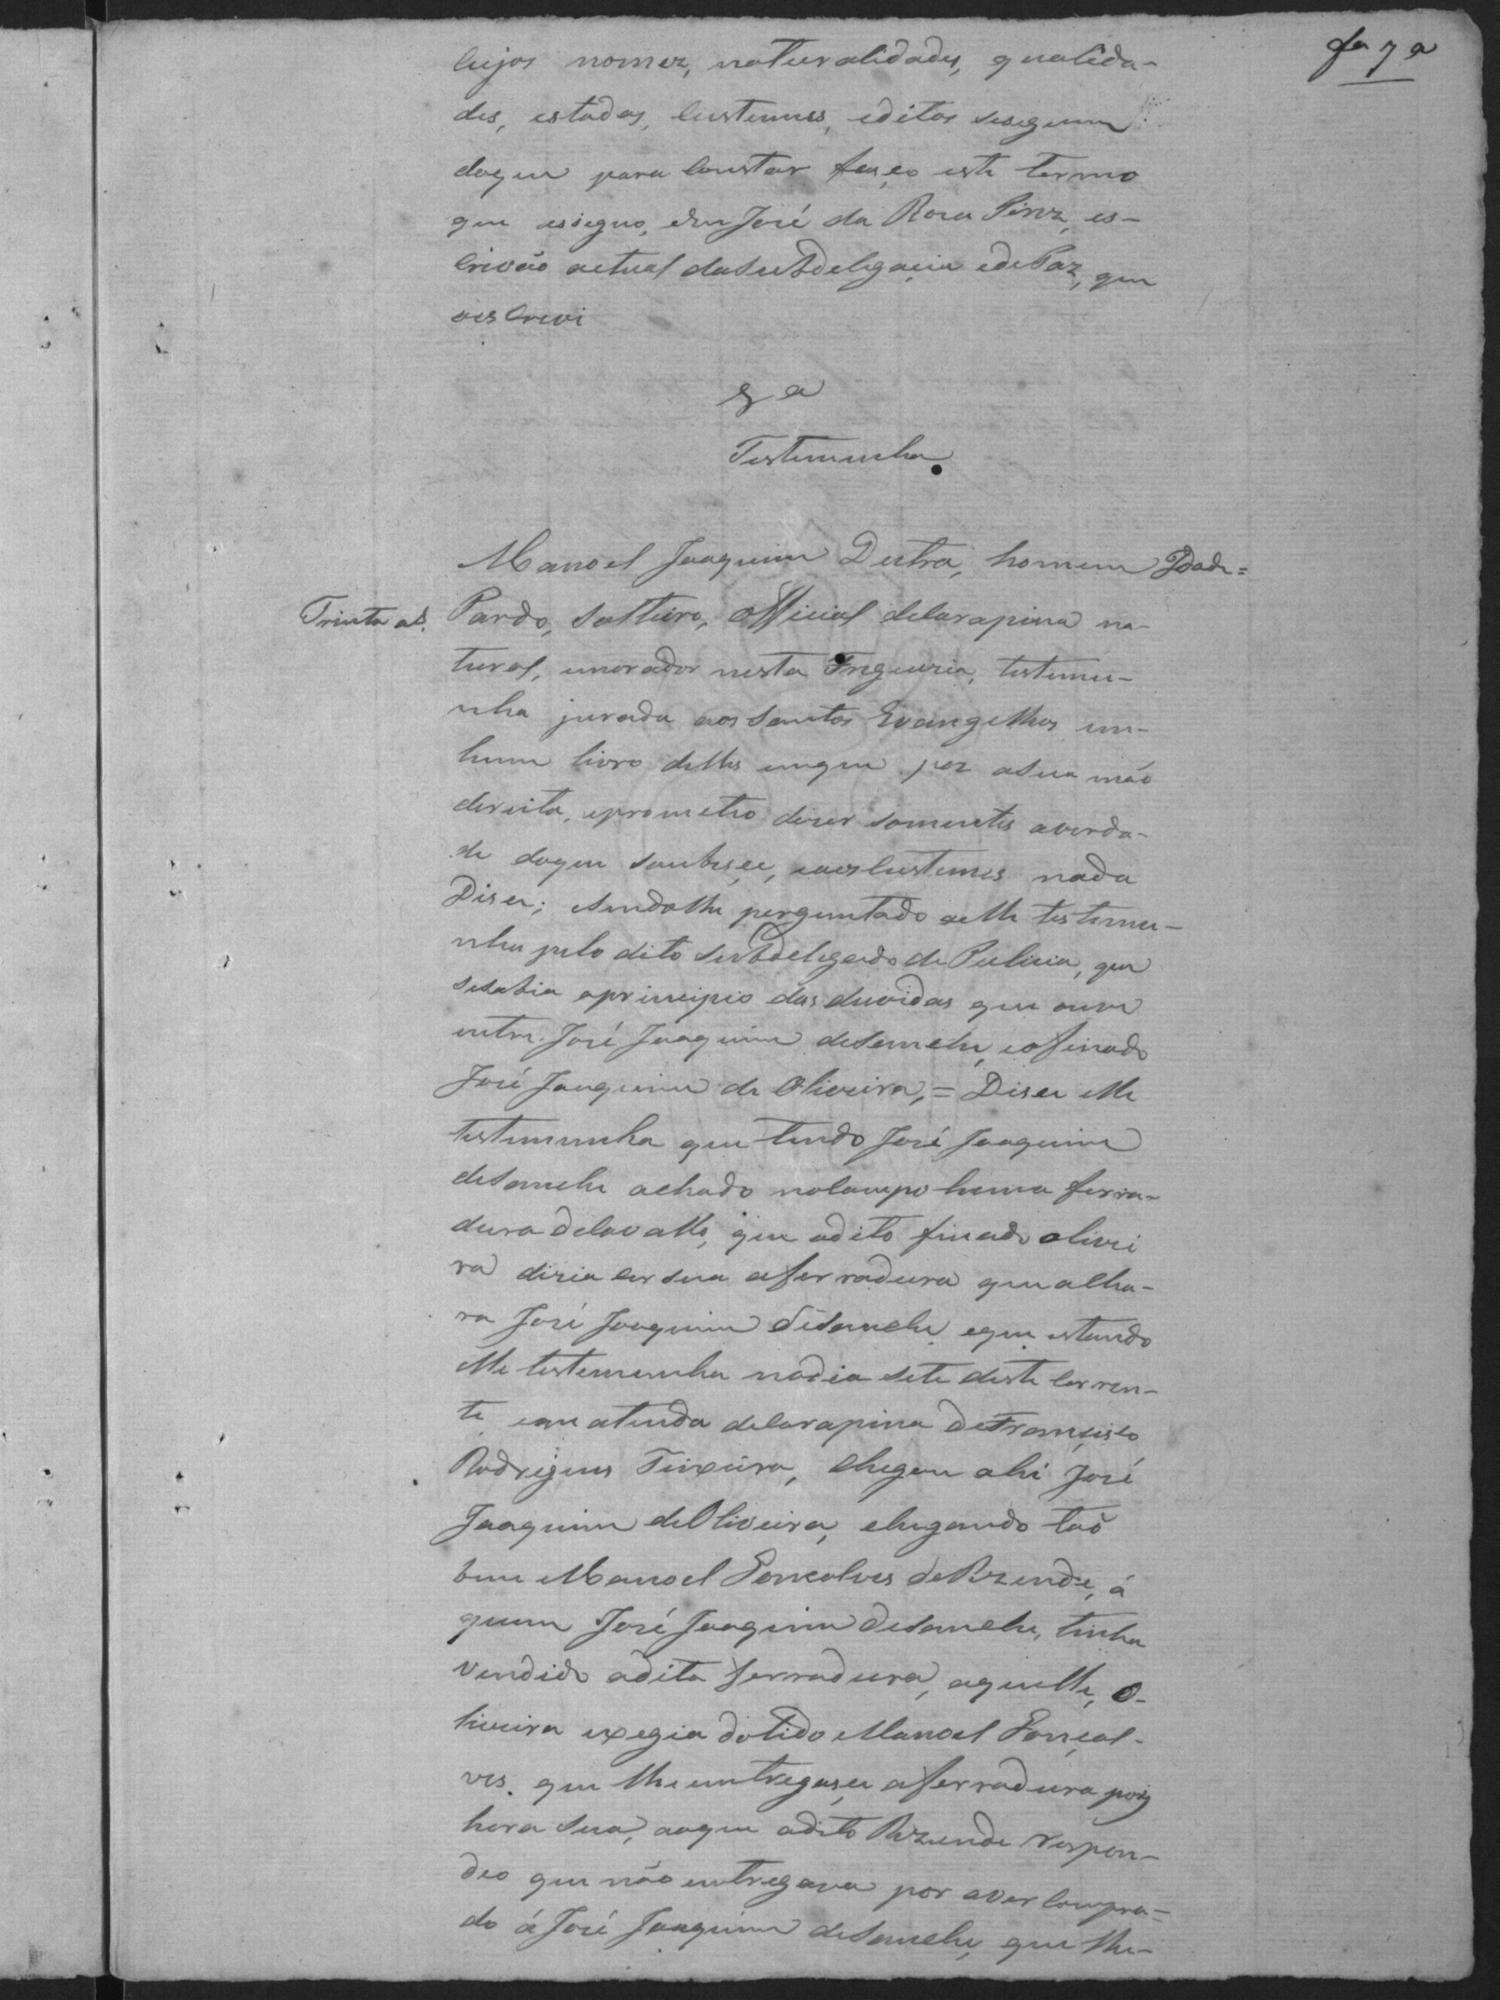 fa 7 a
cujos nomez, naturalidades, qualida-
des, estados, custumes, editos seseguem
doque para constar faço este termo
que assigno, eEu José da Rosa Pirez, es-
crivão actual daSubdelegacia edePaz, que
oescrevi
8 a
Testemunha
Manoel Joaquim Dutra, homem Idade=
Trinta as. Pardo, Solteiro, official decarapina na-
tural, emorador nesta Freguezia, testemu-
nha jurada aos Santos Evangelhos em-
hum livro delles emque poz asua mão
direita, eprometeo dizer somentes averda-
de doque soubeçe, eaoscustumes nada
Dise; esendolhe perguntado aelle testemu-
nha pelo dito Subdelegado de Policia, que
sesabia oprincipio das duvidas que ouve
entre José Joaquim deSameche, eofinado
José Joaquim de Oliveira, = Dise elle
testemunha que tendo José Joaquim
deSameche achado nocampo huma ferra-
dura decavallo, que odito finado olivei
ra dizia ser sua aferradura que acha-
ra José Joaquim deSameche eque estando
elle testemunha nodia sete deste corren-
te em atenda decarapina deFrancisco
Rodrigues Teixeira, chegou ahi José
Joaquim deOliveira, chegando taõ
bem Manoel Goncalves deRezende, á
quem José Joaquim deSameche, tinha
vendido adita ferradura, aquelle, O-
liveira exegia dotido Manoel Gonçal-
ves. que lhe entregaçe aferradura pois
hera sua, aoque odito Rezende respon-
deo que não entregava por aver compra=
do á José Joaquim deSameche, que lhe-